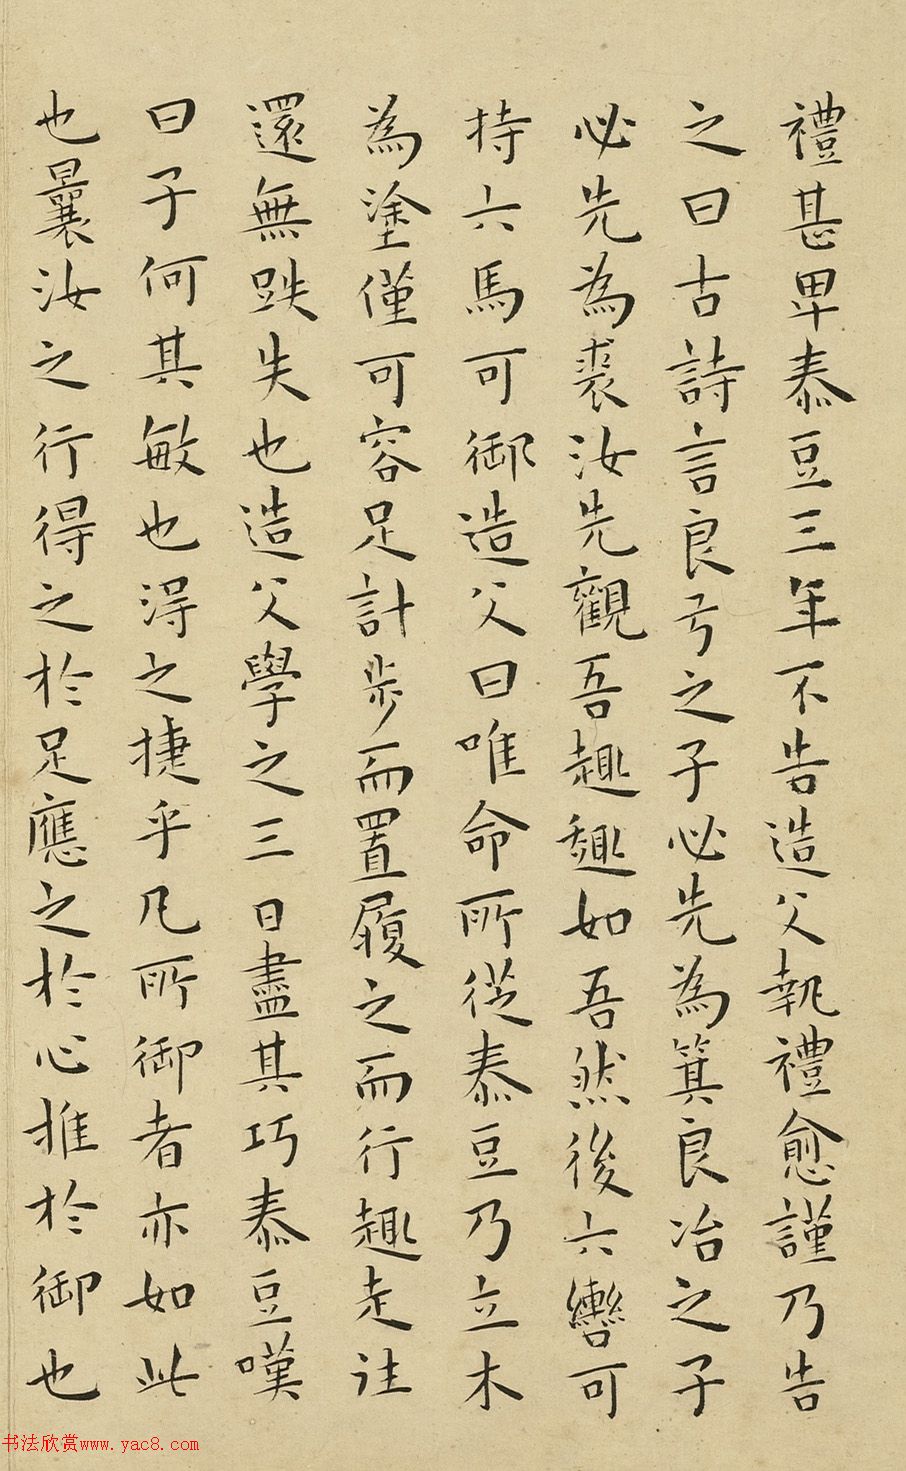 禮甚卑泰豆三年不告造父執禮愈謹乃告
之曰古詩言良弓之子必先為箕良冶之子
必先為裘汝先觀吾趣趣如吾然後六轡可
持六馬可御造父曰唯命所從泰豆乃立木
為塗僅可容足計步而置履之而行趣走往
還無跌失也造父學之三日盡其巧泰豆嘆
曰子何其敏也得之捷乎凡所御者亦如此
也曩汝之行得之於足應之於心推於御也
书法欣赏www.yac8.com